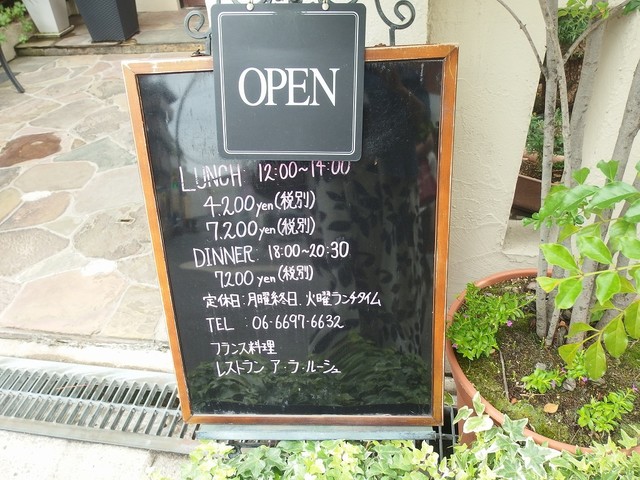 OPEN
LUNCH 12:00~14:00
4.200yen(税別)
7.200yen(税別)
DINNER 18:00~20:30
7200yen(税別)
定休日:月曜終日.火曜ランチタイム
TEL :06・6697-6632
フランス料理
レストラン ア・ラ・ルーシュ